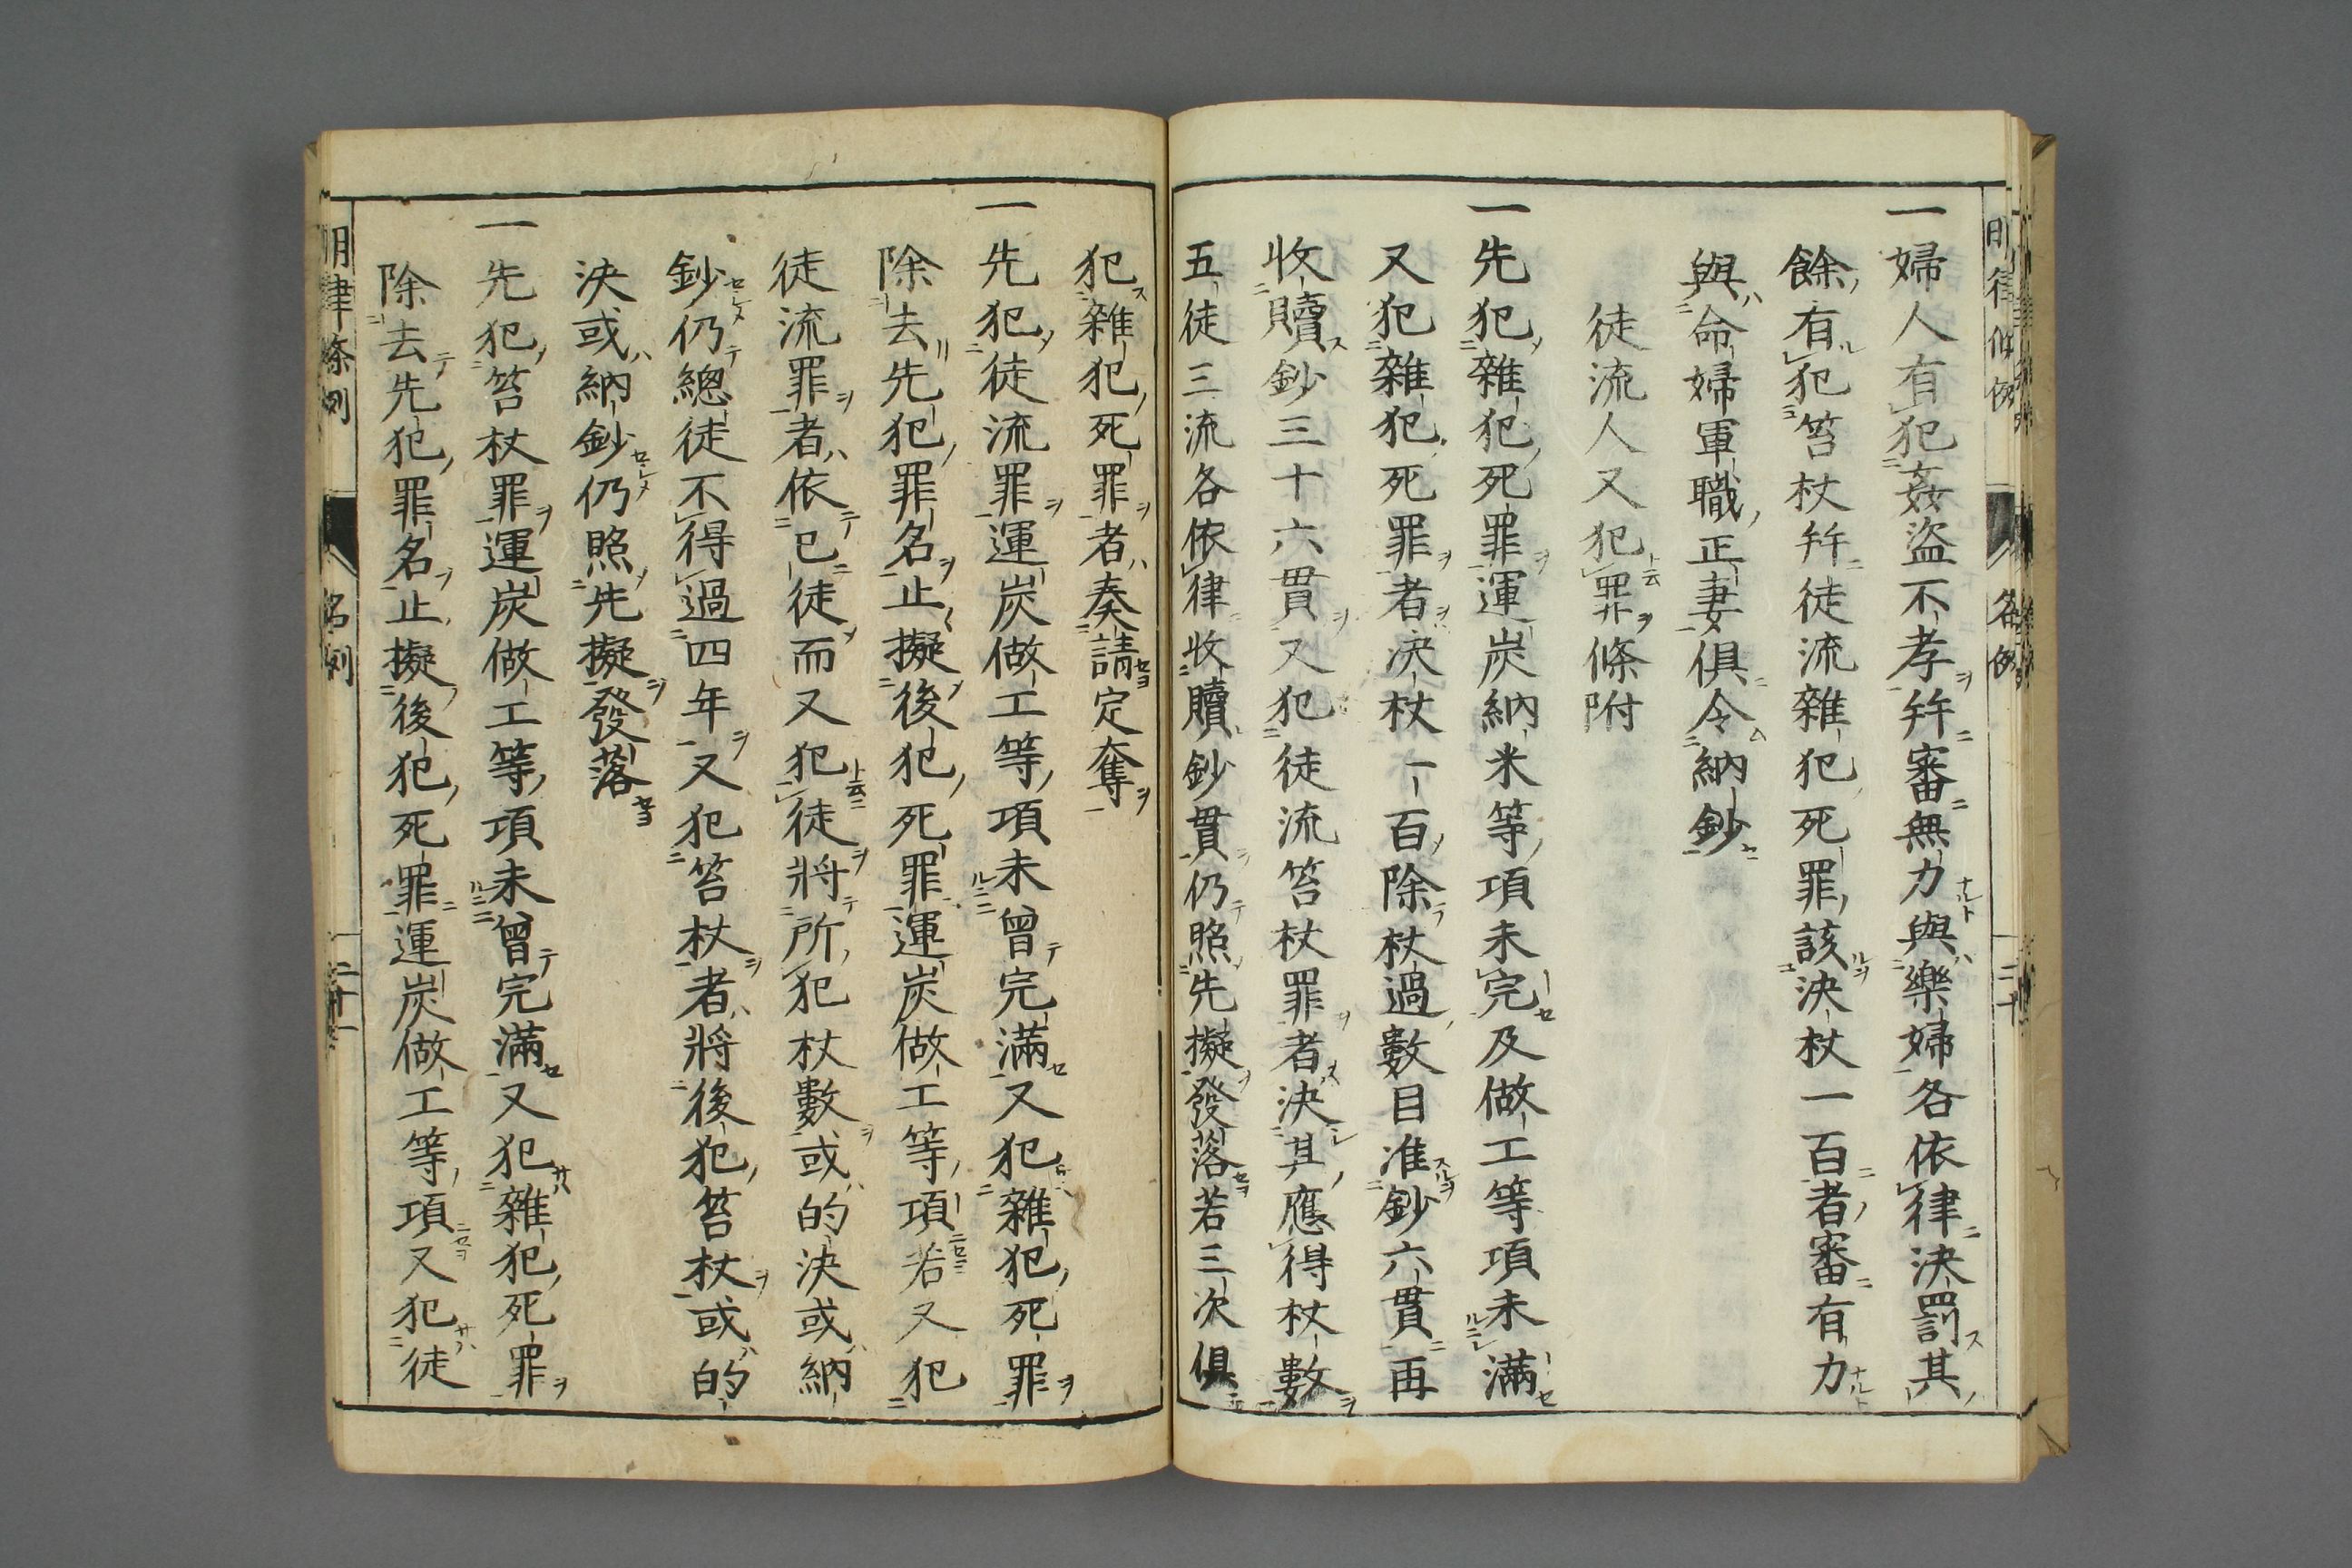 一婦人有犯姦盜不孝幷審無力與樂婦各依律決罰其
餘有犯笞杖幷徒流雜犯死罪該決杖一百者審有力
與命婦軍職正妻俱令納鈔
徒流人又犯罪條附
一先犯雜犯死罪運炭納米等項未完及做工等項未滿
又犯雜犯死罪者決杖一百除杖過數目准鈔六貫再
收贖鈔三十六貫又犯徒流笞杖罪者決其應得杖數
五徒三流各依律收贖鈔貫仍照先擬發落若三次俱
犯雜犯死罪者奏請定奪
一先犯徒流罪運炭做工等項未曾完滿又犯雜犯死罪
除去先犯罪名止擬後犯死罪運炭做工等項若又犯
徒流罪者依已徒而又犯徒將所犯杖數或的決或納
鈔仍總徒不得過四年又犯笞杖者將後犯笞杖或的
決或納鈔仍照先擬發落
一先犯笞杖罪運炭做工等項未曾完滿又犯雜犯死罪
除去先犯罪名止擬後犯死罪運炭做工等項又犯徒
明律條例 名例 二十一